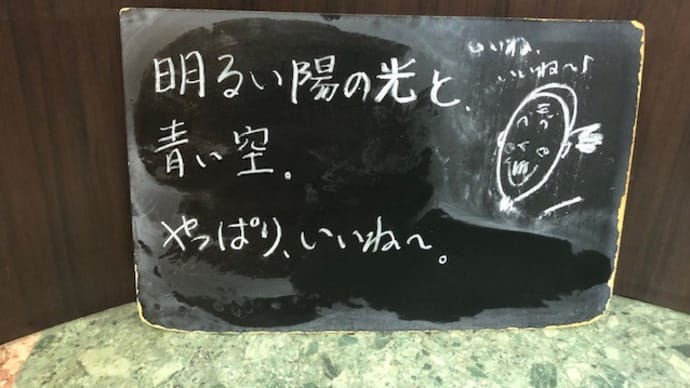 明るい陽の光と、
青い空。
やっぱり、いいね〜。
いいね、
いいね〜♪